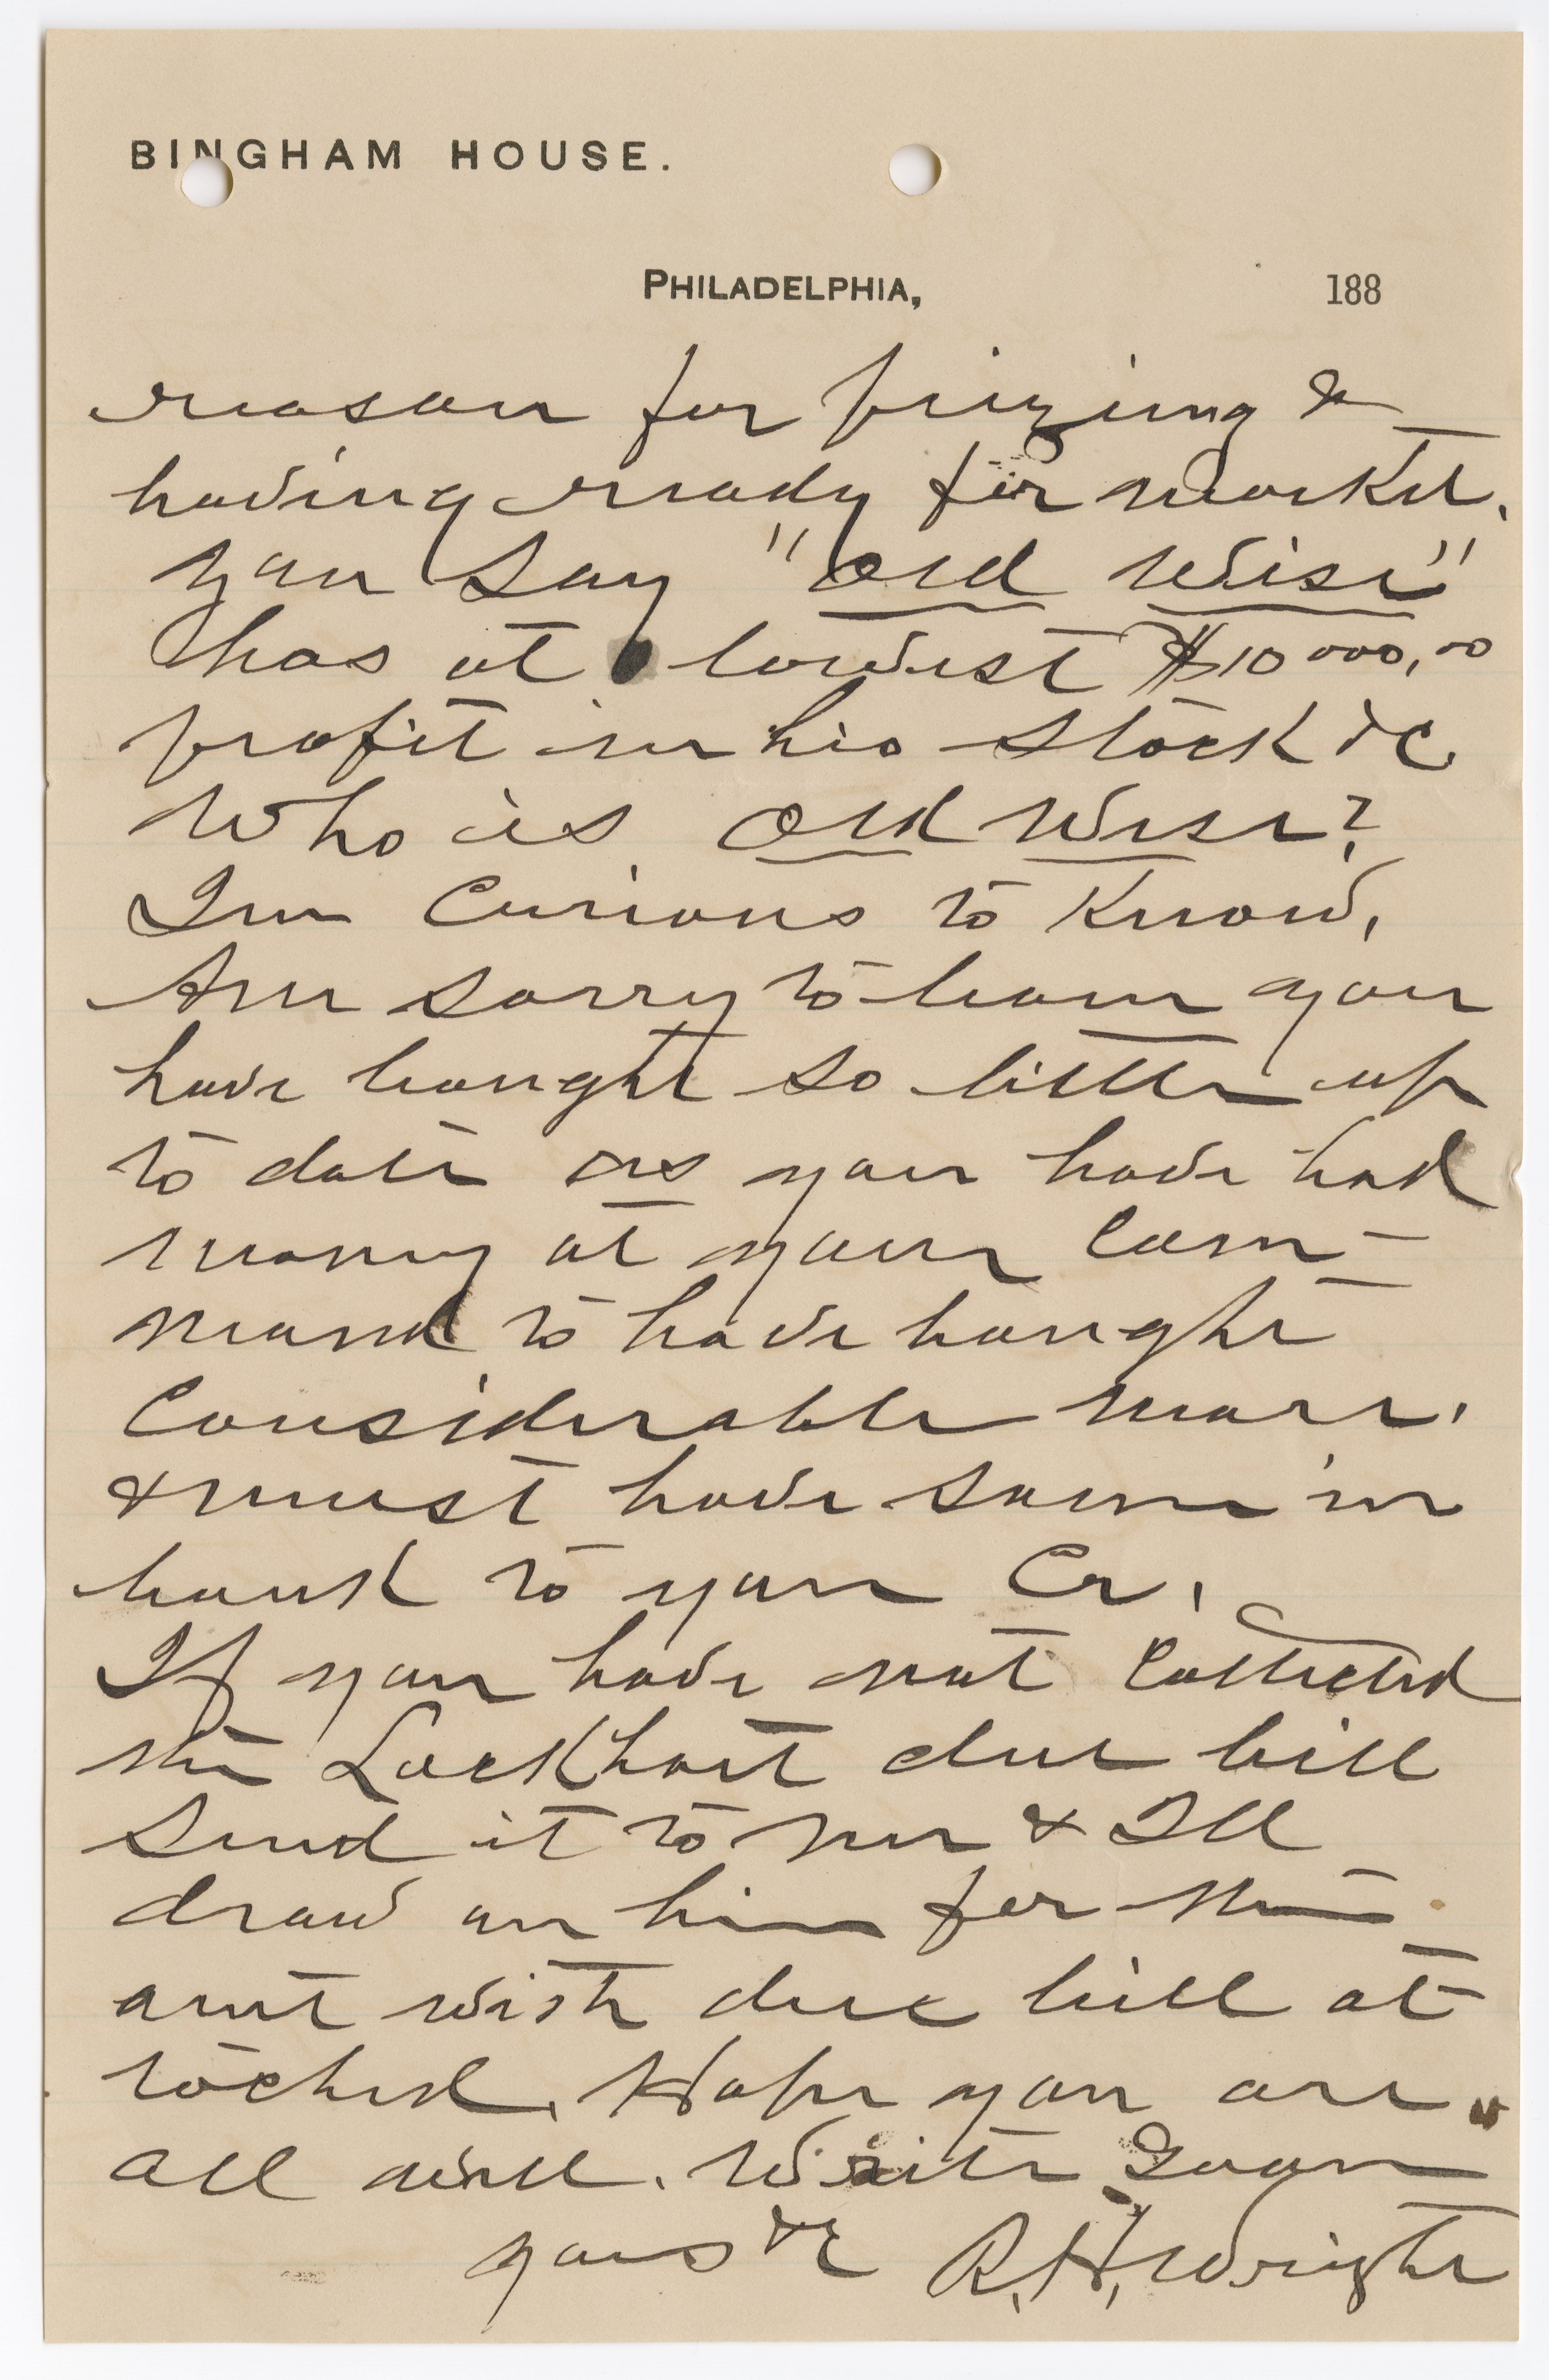 BINGHAM HOUSE.
PHILADELPHIA, 188
reason for prizing &
having ready for market.
you say "Old Wise"
has at lowest $10000.00
profit in his stock &c
Who is Old Wise?
Im Curious to Know,
Am sorry to learn you
have bought so little up
to date as you have had
money at your Com-
mand to have bought
Considerable more.
& must have some in
bank to your Cr.
If you have not Collected
the Lockhart due bill
Send it to me & Ill
draw on him for the
amt with due bill at
tached. Hope you are
all well. Write Soon
yours &c R. H. Wright